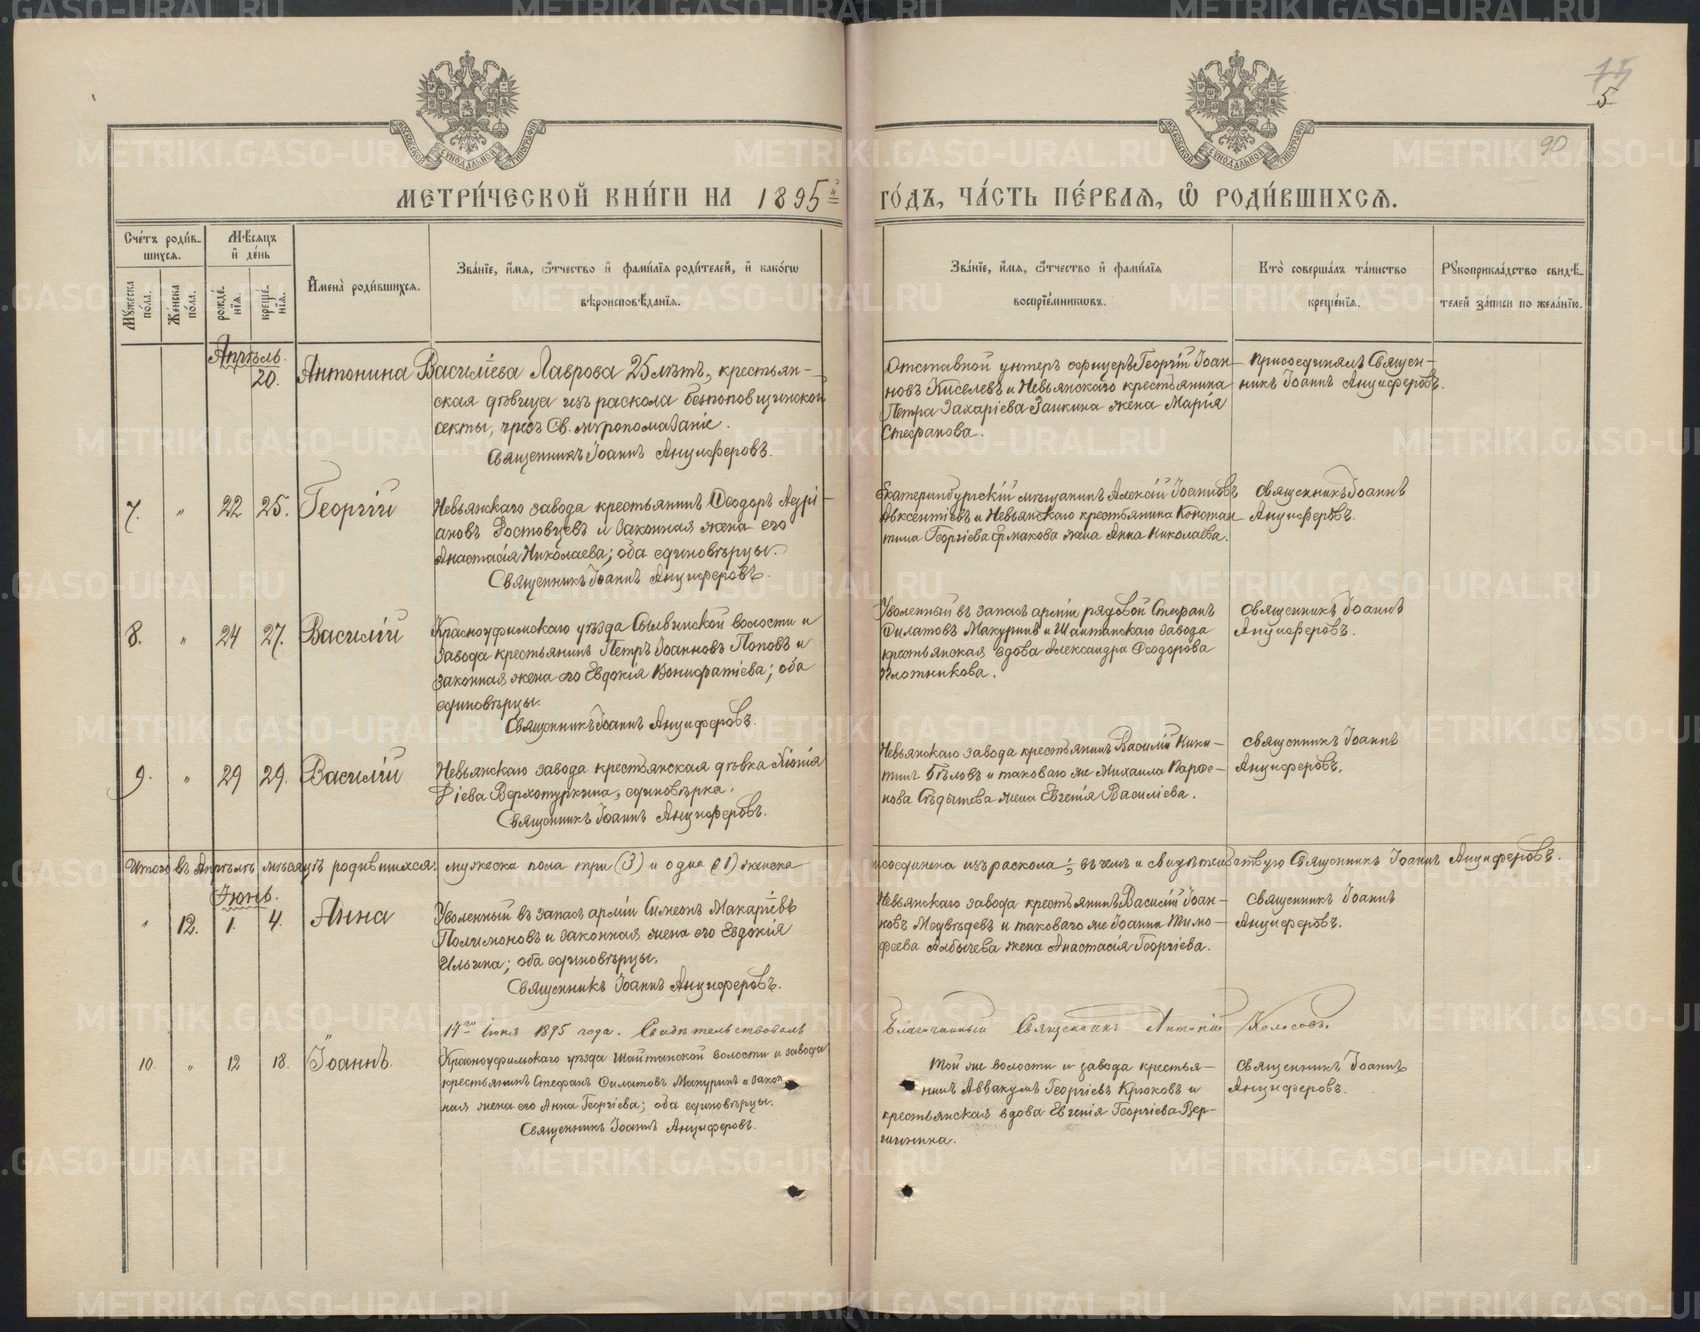 15
5
90
МЕТРИ́ЧЕСКОЙ КНИ́ГИ НА 1895й ГО́ДЪ, ЧА́СТЬ ПЕ́РВАЯ, Ѡ҆ РОДИ́ВШИХСЯ.
Сче́тъ роди́в-
шихся.
Мѣ́сяцъ
и҆ де́нь
Мꙋ́жеска по́ла.
Же́нска по́ла.
рожде́-
нїя.
креще́-
нїя.
И҆мена̀ роди́вшихся.
Зва́нїе, и҆́мя, ѻ҆́тчество и҆ фамі́лїя роди́телей, и҆ како́гѡ
вѣроисповѣ́данїя.
Зва́нїе, и҆́мя, ѻ҆́тчество и҆ фамі́лїя
воспрїе́мникѡвъ.
Кто̀ соверша́лъ та́инство
креще́нїя.
Рꙋкоприкла́дство свидѣ́-
телей за́писи по жела́нїю.
Апрѣль.
20.
Антонина Василіева Лаврова 25 лѣтъ, крестьян-
ская дѣвица изъ раскола безпоповщинской
секты, чрезъ Св. мѵропомазаніе.
Священникъ Іоаннъ Анциферовъ.
Отставной унтеръ офицеръ Георгій Іоан-
новъ Киселевъ и Невьянскаго крестьянина
Петра Захаріева Заикина жена Марія
Стефанова.
Присоединялъ Священ-
никъ Іоаннъ Анциферовъ.
7. " 22 25. Георгій
Невьянскаго завода крестьянинъ Ѳеодоръ Адрі-
ановъ Ростовцевъ и законная жена его
Анастасія Николаева; оба единовѣрцы.
Священникъ Іоаннъ Анциферовъ.
Екатеринбургскій мѣщанинъ Алексій Іоанновъ
Авксентіевъ и Невьянскаго крестьянина Констан-
тина Георгіева Ермакова жена Анна Николаева.
Священникъ Іоаннъ
Анциферовъ.
8. " 24 27. Василій
Красноуфимскаго уѣзда Сылвинской волости и
завода крестьянинъ Петръ Іоанновъ Поповъ и
законная жена его Евдокія Вонифатіева; оба
единовѣрцы.
Священникъ Іоаннъ Анциферовъ.
Уволенный въ запасъ арміи рядовой Стефанъ
Филатовъ Макуринъ и Шайтанскаго завода
крестьянская вдова Александра Ѳеодорова
Плотникова.
Священникъ Іоаннъ
Анциферовъ.
9. " 29 29. Василій
Невьянскаго завода крестьянская дѣвка Хіонія
Верхотуркина, единовѣрка.
Священникъ Іоаннъ Анциферовъ.
Невьянскаго завода крестьянинъ Василій Ники-
тинъ Бѣловъ и таковаго же Михаила Парѳе-
нова Сѣдышева жена Евгенія Василіева.
Священникъ Іоаннъ
Анциферовъ.
Итого въ Апрѣлѣ мѣсяцѣ родившихся: мужеска пола три (3) и одна (1) женска
присоединена изъ раскола; въ чемъ и свидѣтельствую Священникъ Іоаннъ Анциферовъ.
Іюнь.
" 12. 1. 4. Анна
Уволенный въ запасъ арміи Симеонъ Макаріевъ
Полимоновъ и законная жена его Евдокія
Ильина; оба единовѣрцы.
Священникъ Іоаннъ Анциферовъ.
Невьянскаго завода крестьянинъ Василій Іоан-
новъ Медвѣдевъ и таковаго же Іоанна Тимо-
феева Албычева жена Анастасія Георгіева.
Священникъ Іоаннъ
Анциферовъ.
14го Іюня 1895 года. Свидѣтельствовалъ
Благочинный Священникъ Антоній Колосовъ.
10. " 12 18. Іоаннъ.
Красноуфимскаго уѣзда Шайтанской волости и завода
крестьянинъ Стефанъ Филатовъ Макуринъ и закон
ная жена его Анна Георгіева; оба единовѣрцы.
Священникъ Іоаннъ Анциферовъ.
Той же волости и завода крестья-
нинъ Аввакумъ Георгіевъ Крюковъ и
крестьянская вдова Евгенія Георгіева
Священникъ Іоаннъ
Анциферовъ.
METRIKI.GASO-URAL.RU